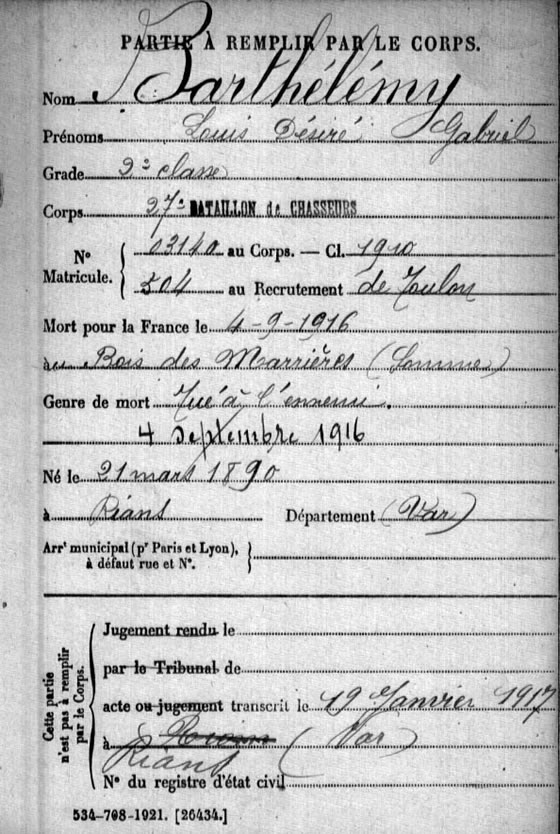 PARTIE À REMPLIR PAR LE CORPS.
Nom Barthélémy
Prénoms Louis Désiré Gabriel
Grade 2e classe
Corps 27e BATAILLON de CHASSEURS
N° Matricule. { 03140 au Corps. — Cl. 1910
504 au Recrutement de Toulon
Mort pour la France le 4-9-1916
au Bois des Marrières (Somme)
Genre de mort Tué à l'ennemi.
4 septembre 1916
Né le 21 mars 1890
à Rians Département (Var)
Arrt municipal (pr Paris et Lyon),
à défaut rue et N°.
Cette partie n'est pas à remplir par le Corps.
Jugement rendu le
par le Tribunal de
acte ou jugement transcrit le 19 Janvier 1917
à (Var)
Rians
N° du registre d'état civil
534-708-1921. [26434.]